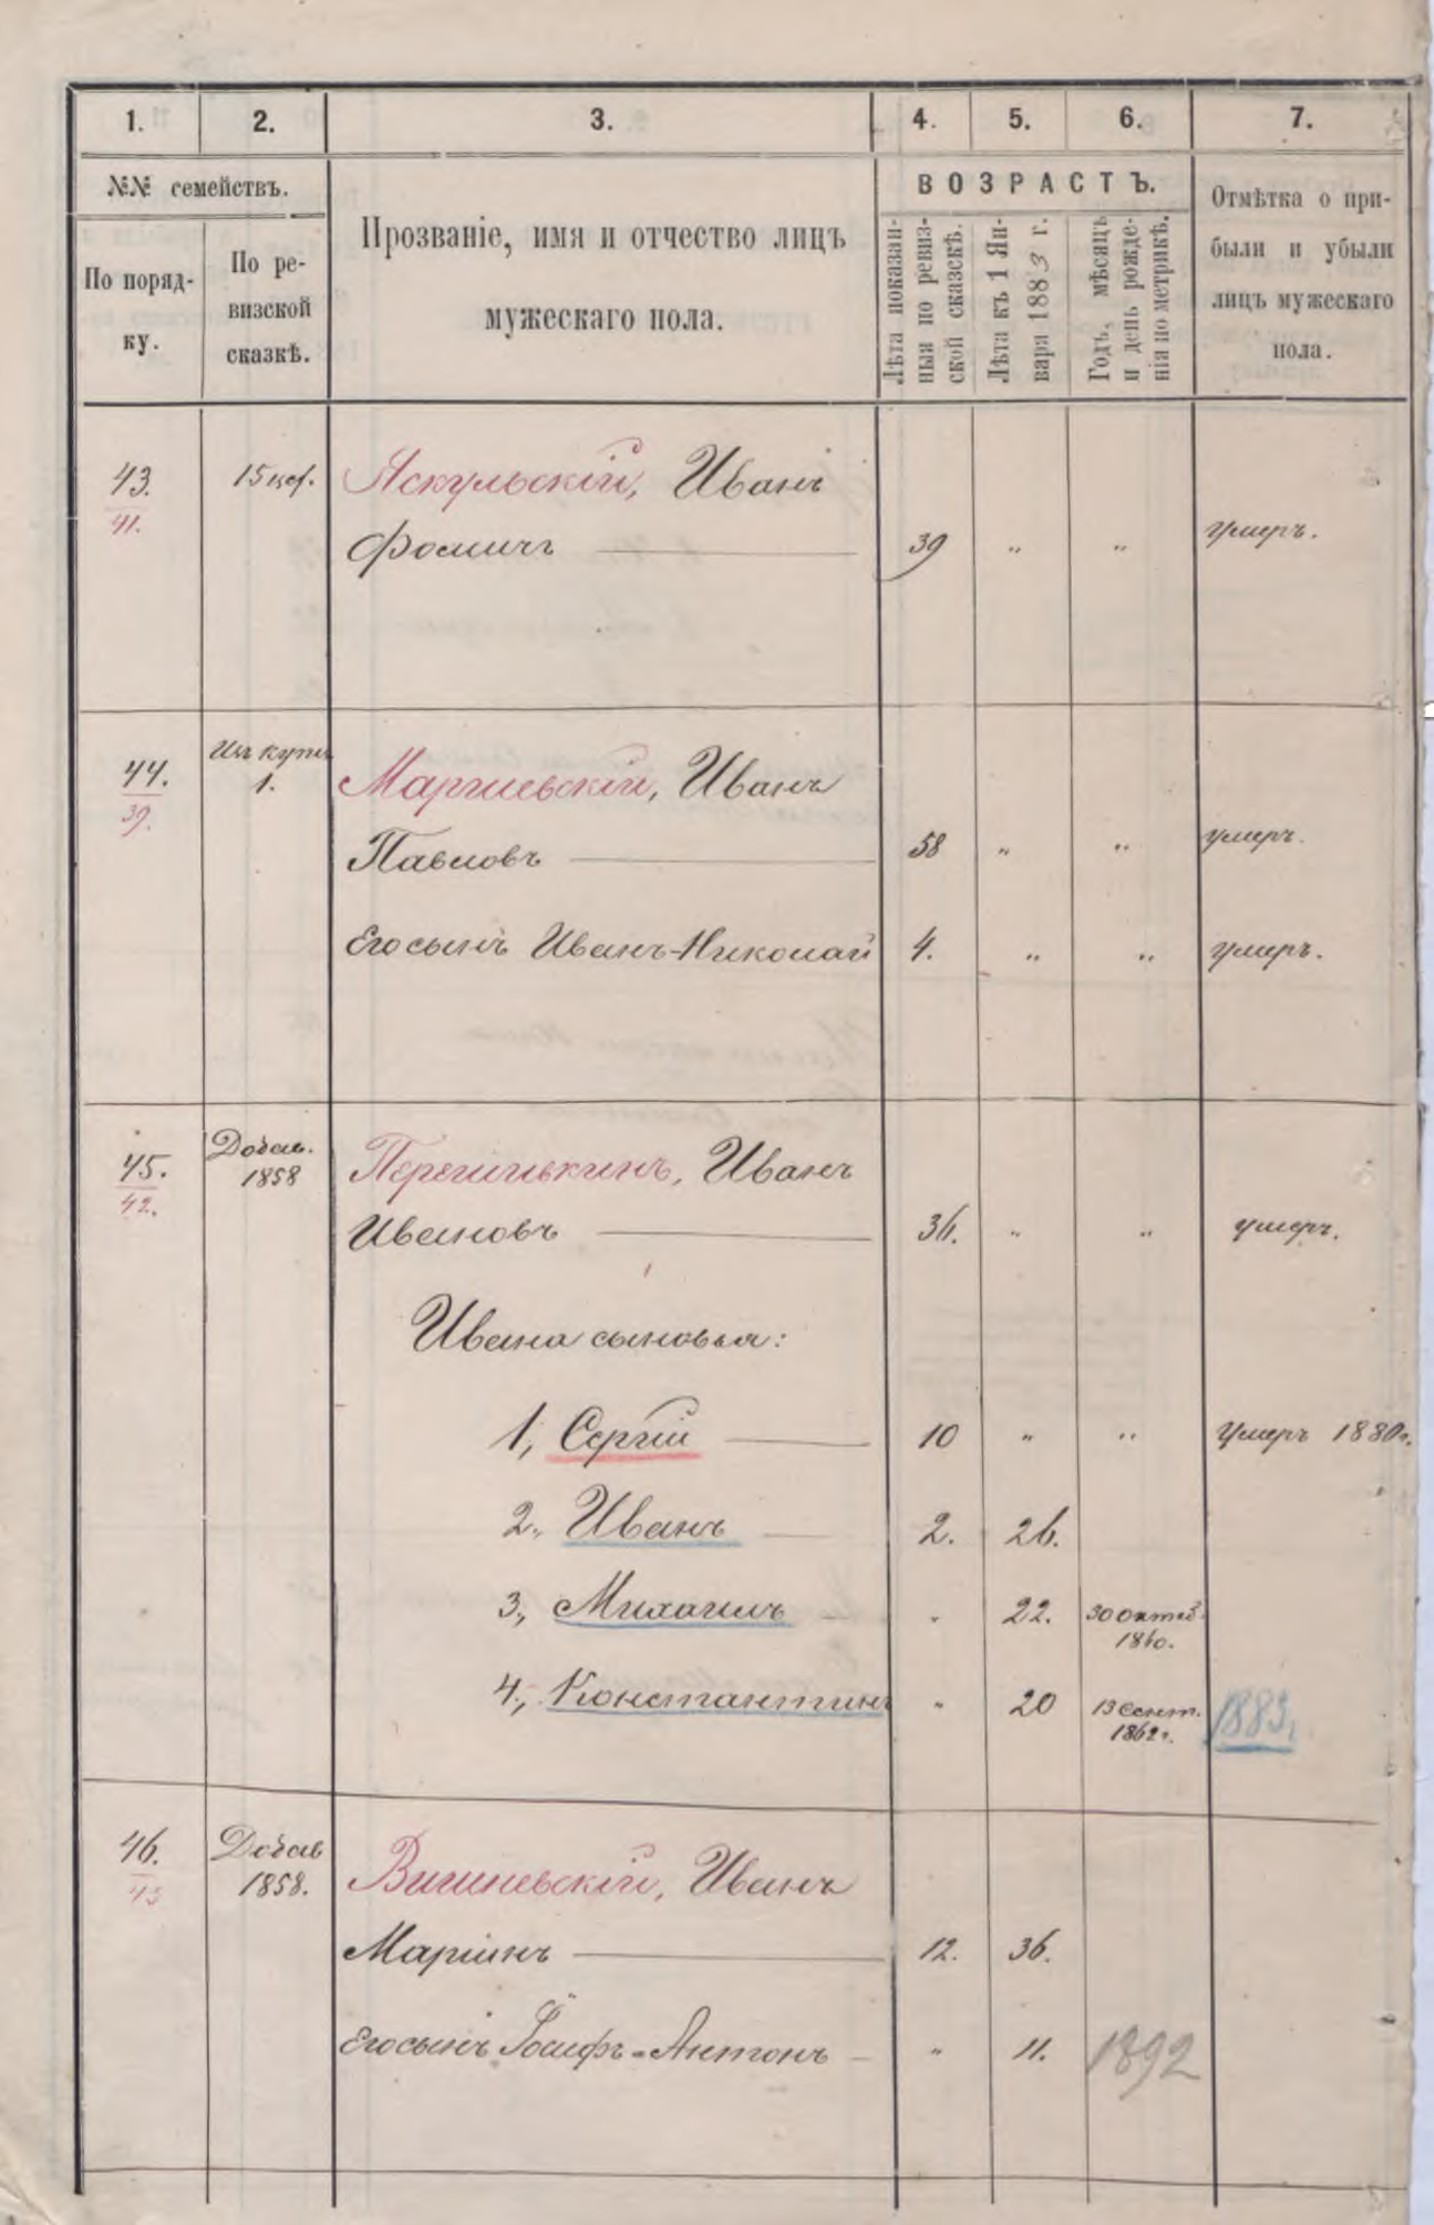 1. 2. 3. 4. 5. 6. 7.
№№ семействъ.
По поряд-
ку.
По ре-
визской
сказкѣ.
Прозваніе, имя и отчество лицъ
мужескаго пола.
ВОЗРАСТЪ.
Лѣта показан-
ныя по ревиз-
ской сказскѣ.
Лѣта къ 1 Ян-
варя 1883 г.
Годъ, мѣсяцъ
и день рожде-
нія по метрикѣ.
Отмѣтка о при-
были и убыли
лицъ мужескаго
пола.
43. Яскульскій, Иванъ
41. Фомичъ 39 " " умеръ.
Изъ купц.
44. 1. Иванъ
39.
Павловъ 58 " " умеръ.
Его сынъ Иванъ-Николай 4. " " умеръ.
Добав.
45. 1858 Иванъ
42.
Ивановъ 36. " " умеръ.
Ивана сыновья:
1, Сергій 10 " " Умеръ 1880 г.
2., Иванъ 2. 26.
3., Михаилъ " 22. 30 Октяб.
1860.
4., Константинъ " 20 13 Сент.
1862 г. 1883.
46. Добав
43 1858. Вишневскій, Иванъ
Маріинъ 12. 36.
Его сынъ Іосифъ-Антонъ " 11. 1892